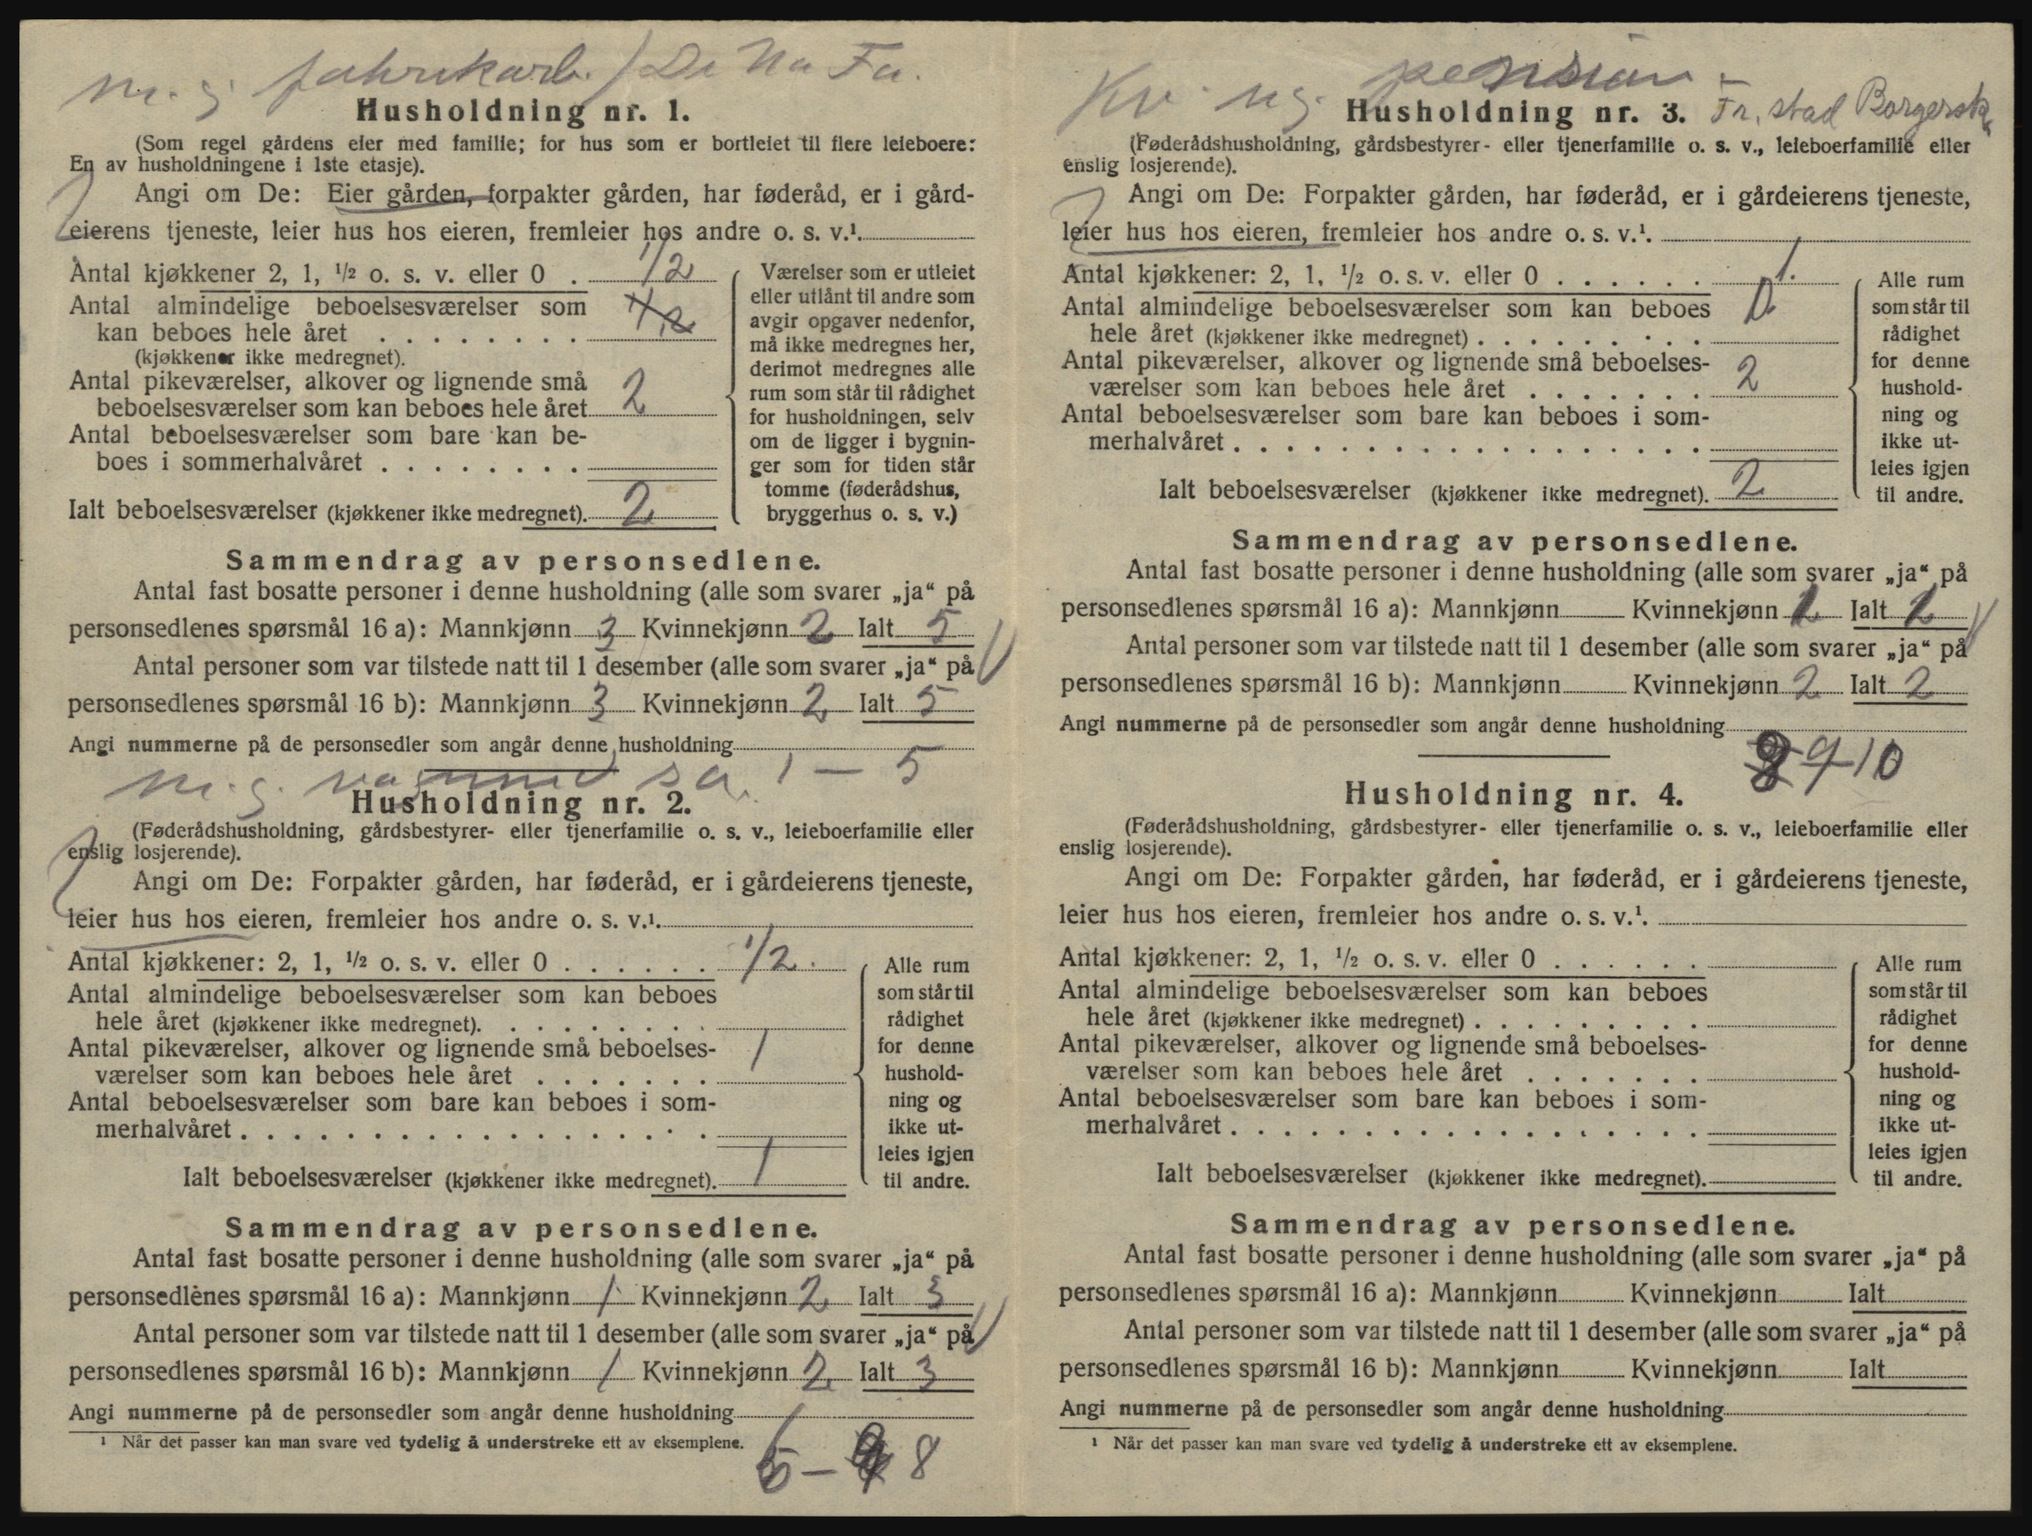 m. g. fabrikarb. / De No Fa.
Husholdning nr. 1.
(Som regel gårdens eier med familie; for hus som er bortleiet til flere leieboere:
En av husholdningene i 1ste etasje).
Angi om De: Eier gården, forpakter gården, har føderåd, er i gård-
eierens tjeneste, leier hus hos eieren, fremleier hos andre o. s. v.¹.
Antal kjøkkener 2, 1, ½ o. s. v. eller 0 . 1/2
Antal almindelige beboelsesværelser som
kan beboes hele året . . . . . . . .
(kjøkkener ikke medregnet).
Antal pikeværelser, alkover og lignende små
beboelsesværelser som kan beboes hele året 2
Antal beboelsesværelser som bare kan be-
boes i sommerhalvåret . . . . . . . .
Ialt beboelsesværelser (kjøkkener ikke medregnet). 2
Værelser som er utleiet
eller utlånt til andre som
avgir opgaver nedenfor,
må ikke medregnes her,
derimot medregnes alle
rum som står til rådighet
for husholdningen, selv
om de ligger i bygnin-
ger som for tiden står
tomme (føderådshus,
bryggerhus o. s. v.)
Sammendrag av personsedlene.
Antal fast bosatte personer i denne husholdning (alle som svarer „ja“ på
personsedlenes spørsmål 16 a): Mannkjønn 3 Kvinnekjønn 2 Ialt 5
Antal personer som var tilstede natt til 1 desember (alle som svarer „ja“ på
personsedlenes spørsmål 16 b): Mannkjønn 3 Kvinnekjønn 2 Ialt 5
Angi nummerne på de personsedler som angår denne husholdning
1 — 5
m. g.
Husholdning nr. 2.
(Føderådshusholdning, gårdsbestyrer- eller tjenerfamilie o. s. v., leieboerfamilie eller
enslig losjerende).
Angi om De: Forpakter gården, har føderåd, er i gårdeierens tjeneste,
leier hus hos eieren, fremleier hos andre o. s. v.¹.
Antal kjøkkener: 2, 1, ½ o. s. v. eller 0 . . . . . . 1/2.
Antal almindelige beboelsesværelser som kan beboes
hele året (kjøkkener ikke medregnet). . . . . . . . .
Antal pikeværelser, alkover og lignende små beboelses-
værelser som kan beboes hele året . . . . . . . 1
Antal beboelsesværelser som bare kan beboes i som-
merhalvåret . . . . . . . . . . . . . . . . . .
Ialt beboelsesværelser (kjøkkener ikke medregnet). 1
Alle rum
som står til
rådighet
for denne
hushold-
ning og
ikke ut-
leies igjen
til andre.
Sammendrag av personsedlene.
Antal fast bosatte personer i denne husholdning (alle som svarer „ja“ på
personsedlenes spørsmål 16 a): Mannkjønn 1 Kvinnekjønn 2 Ialt 3
Antal personer som var tilstede natt til 1 desember (alle som svarer „ja“ på
personsedlenes spørsmål 16 b): Mannkjønn 1 Kvinnekjønn 2 Ialt 3
Angi nummerne på de personsedler som angår denne husholdning
¹ Når det passer kan man svare ved tydelig å understreke ett av eksemplene.
6 — 8
Kv. ug. pension
Husholdning nr. 3. Fr. stad Borgersk.
(Føderådshusholdning, gårdsbestyrer- eller tjenerfamilie o. s. v., leieboerfamilie eller
enslig losjerende).
Angi om De: Forpakter gården, har føderåd, er i gårdeierens tjeneste,
leier hus hos eieren, fremleier hos andre o. s. v.¹.
Antal kjøkkener: 2, 1, ½ o. s. v. eller 0 . . . . . . 1.
Antal almindelige beboelsesværelser som kan beboes
hele året (kjøkkener ikke medregnet) . . . . . . . . .
Antal pikeværelser, alkover og lignende små beboelses-
værelser som kan beboes hele året . . . . . . . 2
Antal beboelsesværelser som bare kan beboes i som-
merhalvåret . . . . . . . . . . . . . . . . . .
Ialt beboelsesværelser (kjøkkener ikke medregnet). 2
Alle rum
som står til
rådighet
for denne
hushold-
ning og
ikke ut-
leies igjen
til andre.
Sammendrag av personsedlene.
Antal fast bosatte personer i denne husholdning (alle som svarer „ja“ på
personsedlenes spørsmål 16 a): Mannkjønn Kvinnekjønn 2 Ialt 2
Antal personer som var tilstede natt til 1 desember (alle som svarer „ja“ på
personsedlenes spørsmål 16 b): Mannkjønn Kvinnekjønn 2 Ialt 2
Angi nummerne på de personsedler som angår denne husholdning
9-10
Husholdning nr. 4.
(Føderådshusholdning, gårdsbestyrer- eller tjenerfamilie o. s. v., leieboerfamilie eller
enslig losjerende).
Angi om De: Forpakter gården, har føderåd, er i gårdeierens tjeneste,
leier hus hos eieren, fremleier hos andre o. s. v.¹.
Antal kjøkkener: 2, 1, ½ o. s. v. eller 0 . . . . . .
Antal almindelige beboelsesværelser som kan beboes
hele året (kjøkkener ikke medregnet) . . . . . . . . .
Antal pikeværelser, alkover og lignende små beboelses-
værelser som kan beboes hele året . . . . . . .
Antal beboelsesværelser som bare kan beboes i som-
merhalvåret . . . . . . . . . . . . . . . . . .
Ialt beboelsesværelser (kjøkkener ikke medregnet).
Alle rum
som står til
rådighet
for denne
hushold-
ning og
ikke ut-
leies igjen
til andre.
Sammendrag av personsedlene.
Antal fast bosatte personer i denne husholdning (alle som svarer „ja“ på
personsedlenes spørsmål 16 a): Mannkjønn Kvinnekjønn Ialt
Antal personer som var tilstede natt til 1 desember (alle som svarer „ja“ på
personsedlenes spørsmål 16 b): Mannkjønn Kvinnekjønn Ialt
Angi nummerne på de personsedler som angår denne husholdning
¹ Når det passer kan man svare ved tydelig å understreke ett av eksemplene.